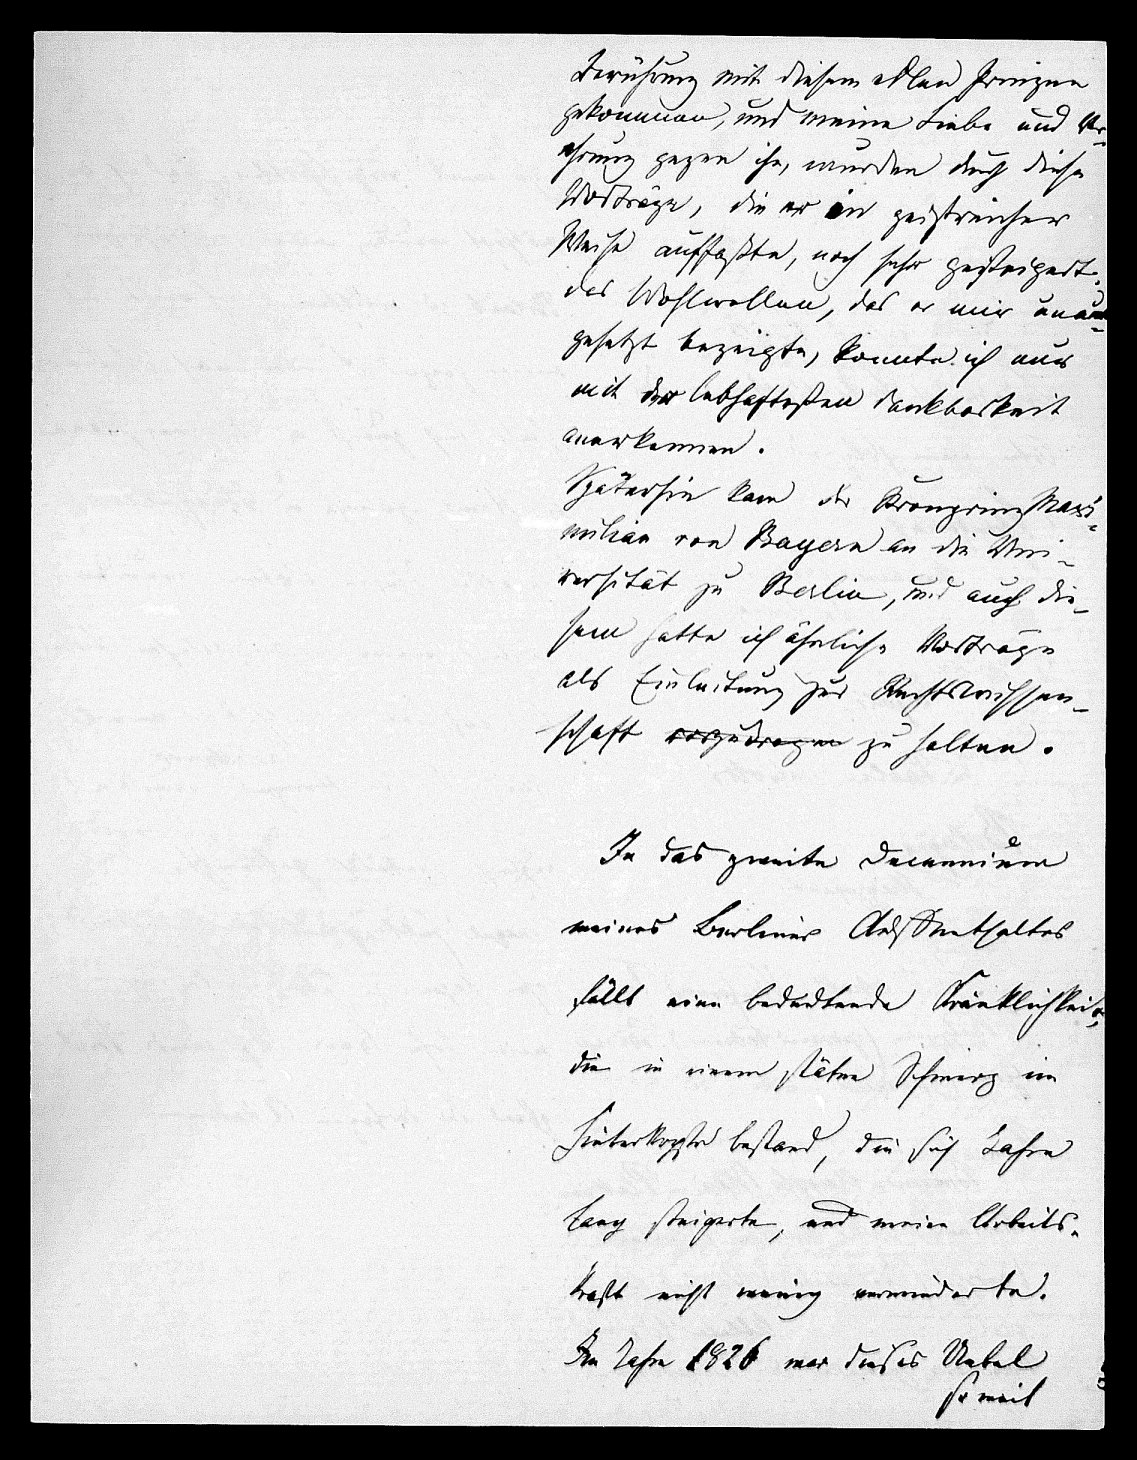 Berührung mit diesem edlen Prinzen
gekommen, und meine Liebe und Ver-
ehrung gegen ihn, wurden durch diese
Vorträge, die er in geistreicher
Weise auffaßte, noch sehr gesteigert.
das Wohlwollen, das er mir unaus-
gesetzt bezeigte, konnte ich nur
mit der lebhaftesten Dankbarkeit
anerkennen.
Späterhin kam der Kronprinz Maxi-
milian von Bayern an die Uni-
versität zu Berlin, und auch die-
sem hatte ich ähnliche Vorträge
als Einleitung zur Rechtswissen-
schaft vorzutragen zu halten.
In das zweite Decennium
meines Berliner Aufenthaltes
fällt eine bedeutende Kränklichkeit,
die in einem stäten Schmerz im
Hinterkopfe bestand, die sich Jahre
lang steigerte, und meine Arbeits-
kraft nicht wenig verminderte.
Im Jahre 1826 war dieses Uebel
so weit